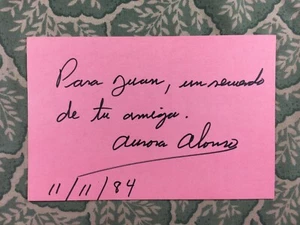 Para Juan, un recuerdo
de tu amiga.
Aurora Alonso
11/11/84